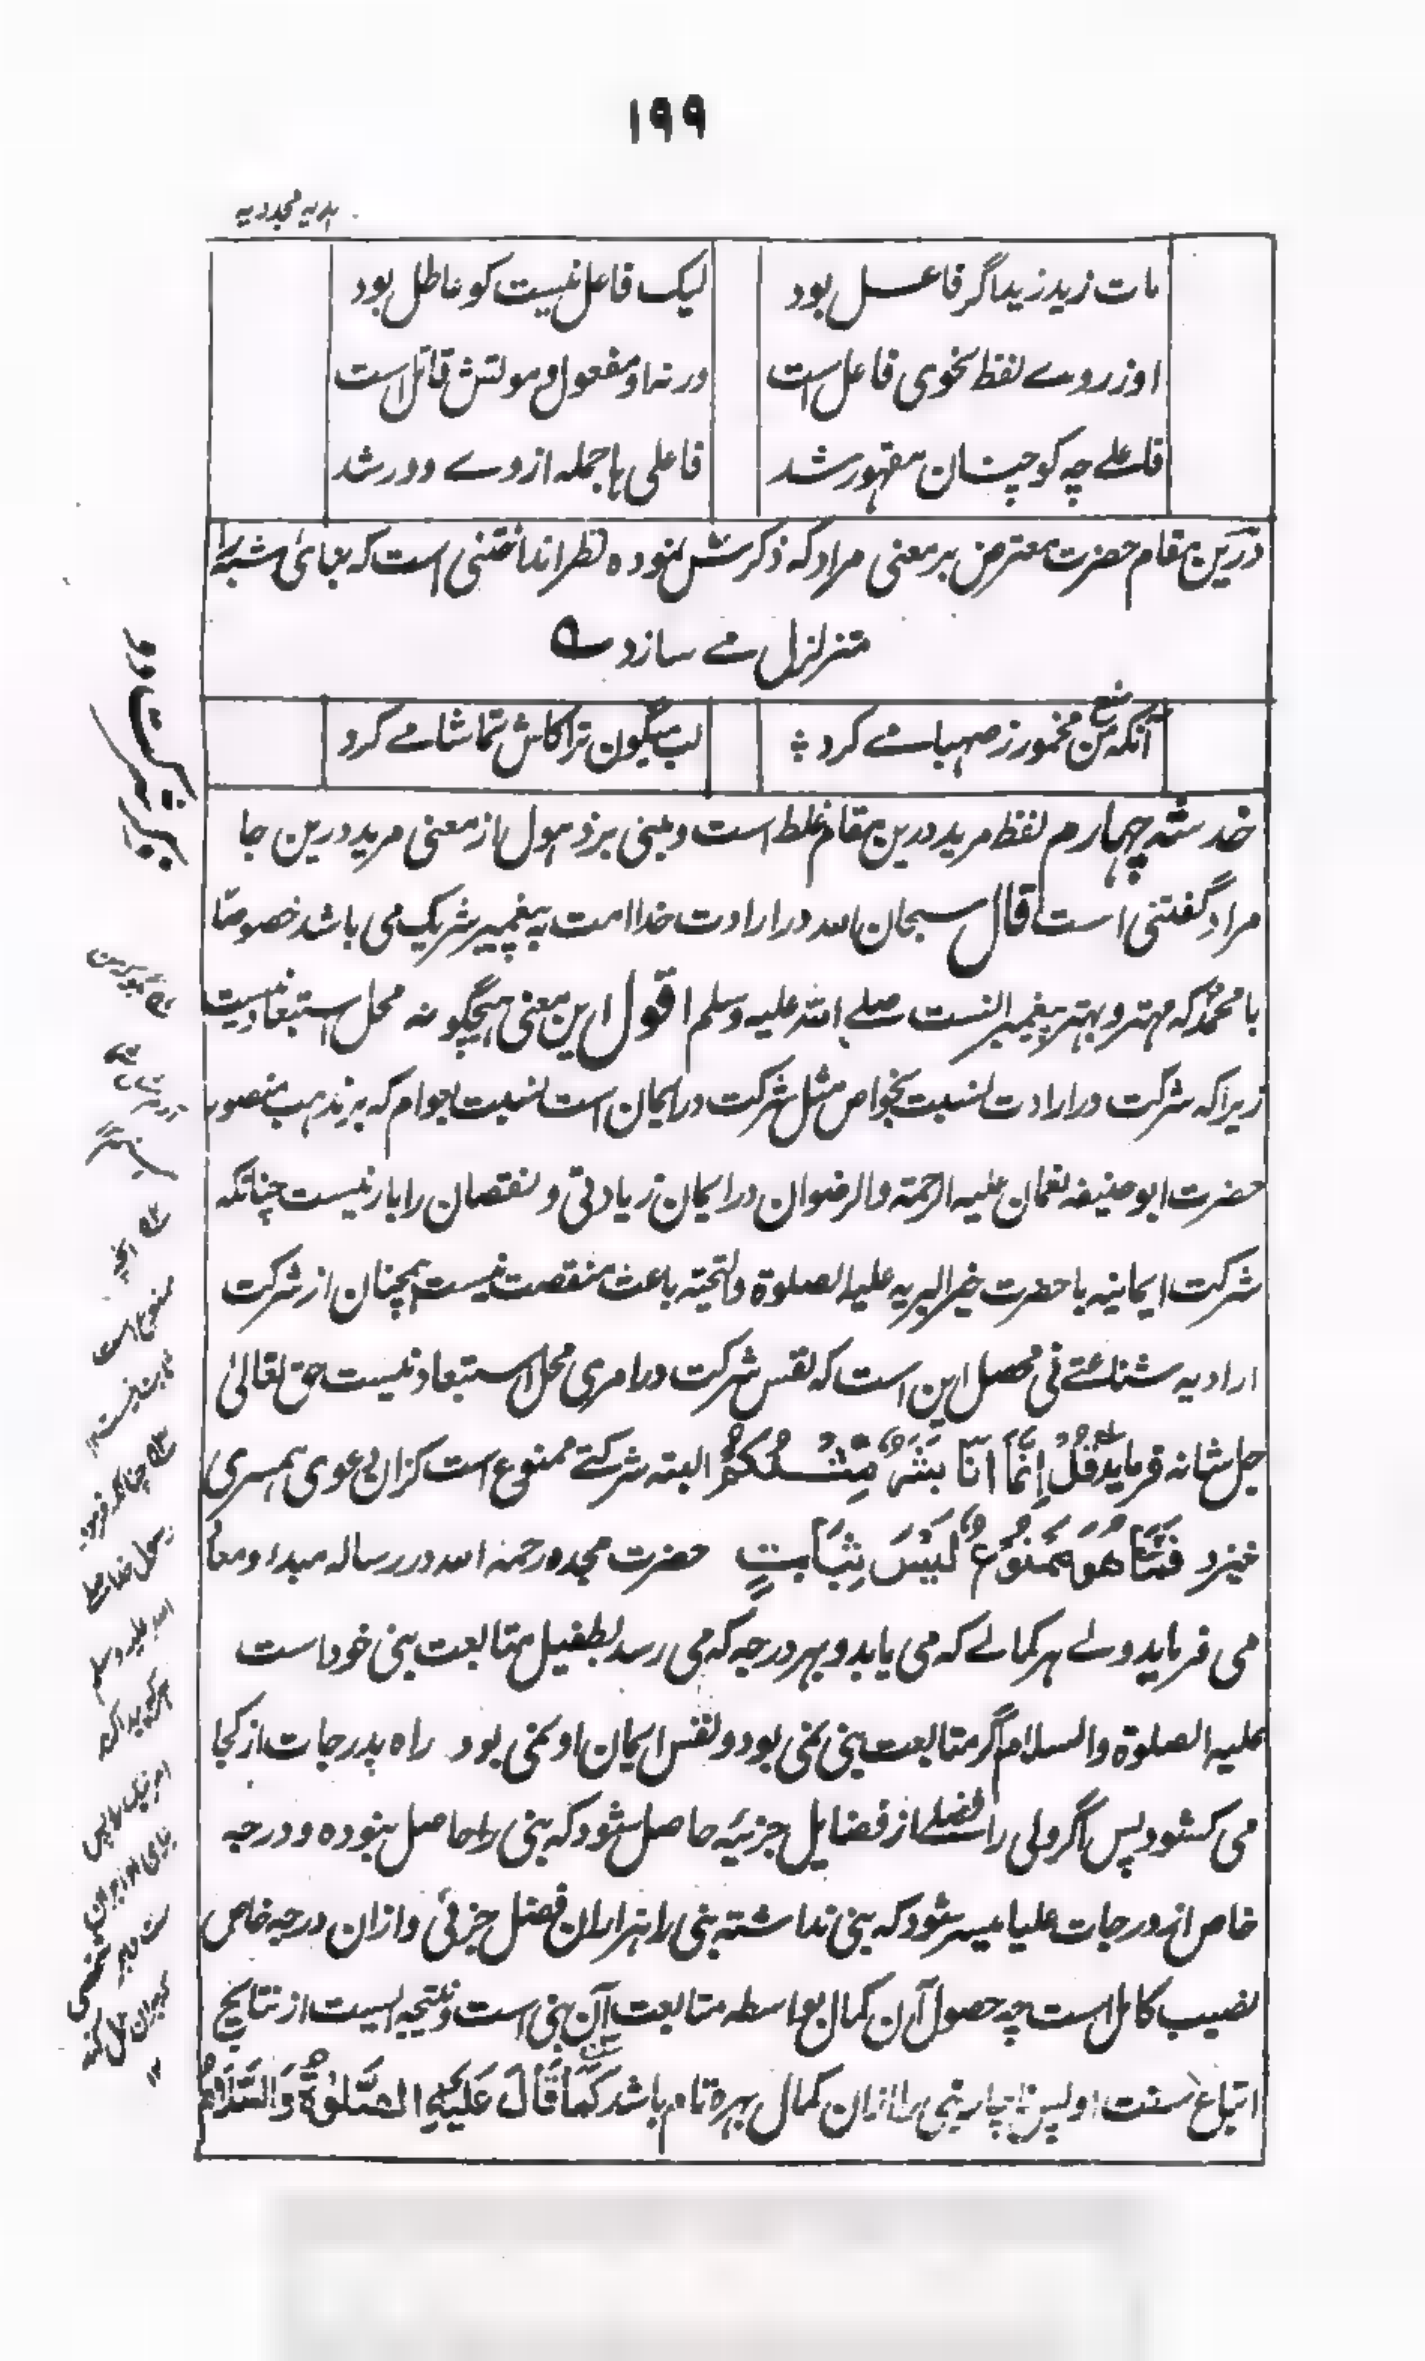 ۱۹۹
ہدیہ مجددیہ
مات زید زید اگر فاعل بود
لیک فاعل نیست کو عاطل بود
او ز روے لفظ نحوی فاعل است
ورنہ او مفعول و موتش قاتل است
فاعلے چہ کو چنان مقہور شد
فاعلی ہا جملہ از وے دور شد
درین مقام حضرت معترض بر معنی مراد کہ ذکرش نمودہ نظر انداختنی است کہ بنائ شبہ را
متزلزل مے سازد ؎
آنکہ منع من مخمور ز صہبا مے کرد ؞
لب میگون ترا کاش تماشا مے کرد
خدشہ چہارم لفظ مرید درین مقام غلط است و مبنی بر ذہول از معنی مرید درین جا
مراد گفتنی است قال سبحان اللہ در ارادت خدا امت بہ پیغمبر شریک می باشد خصوصًا
با محمد کہ مہتر و بہتر پیغمبر انست صلے اللہ علیہ وسلم اقول این معنی ہیچگونہ محل استبعاد نیست
زیرا کہ شرکت در ارادت نسبت بخواص مثل شرکت در ایمان است نسبت بعوام کہ بر مذہب منصور
حضرت ابو حنیفہ نعمان علیہ الرحمۃ والرضوان در ایمان زیادتی و نقصان را بار نیست چنانکہ
شرکت ایمانیہ با حضرت خیر البریہ علیہ الصلوۃ والتحیتہ باعث منقصت نیست ہمچنان از شرکت
ارادیہ شناعتے نی محصل این است کہ نفس شرکت در امری محل استبعاد نیست حق تعالیٰ
جل شانہ فرماید قُلْ اِنَّمَا اَنَا بَشَرٌ مِّثْلُكُمْ البتہ شرکتے ممنوع است کزان دعوی ہمسری
خیزد فَمَا هُوَ مَمْنُوْعٌ لَيْسَ بِثَابِتٍ حضرت مجدد رحمہ اللہ در رسالہ مبدا و معاد
می فرماید ولے ہر کمالے کہ می یابد و بہر درجہ کہ می رسد بطفیل متابعت نبی خود است
علیہ الصلوۃ والسلام اگر متابعت نبی نمی بود و نفس ایمان او نمی بود راہ بدرجات از کجا
می کشود پس اگر ولی را فضلے از فضایل جزئیہ حاصل شود کہ نبی را حاصل نبودہ و درجہ
خاص از درجات علیا میسر شود کہ نبی نداشتہ نبی را نیز ازان فضل جزئی و ازان درجہ خاص
نصیب کامل است چہ حصول آن کمال بواسطہ متابعت آن نبی است و نتیجہ ایست از نتایج
اتباع سنت او پس ناچار نبی را ازان کمال بہرہ تام باشد كَمَا قَالَ عَلَيْهِ الصَّلٰوةُ وَالسَّلَامُ
رسول خدا صلے
اللہ علیہ وسلم